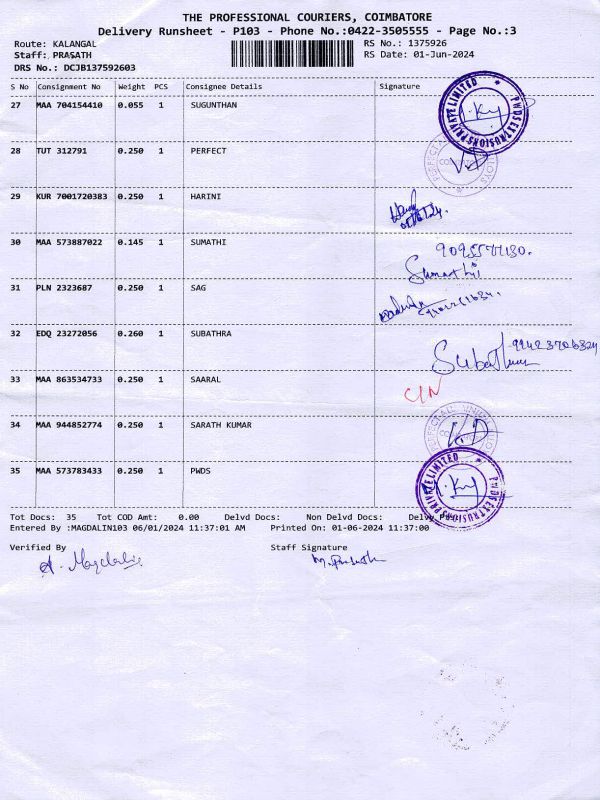 THE PROFESSIONAL COURIERS, COIMBATORE
Delivery Runsheet - P103 - Phone No.:0422-3505555 - Page No.:3
Route: KALANGAL RS No.: 1375926
Staff: PRASATH RS Date: 01-Jun-2024
DRS No.: DCJB137592603
S No Consignment No Weight PCS Consignee Details Signature
27 MAA 704154410 0.055 1 SUGUNTHAN
PWDS EXTRUSIONS PRIVATE LIMITED
28 TUT 312791 0.250 1 PERFECT
29 KUR 7001720383 0.250 1 HARINI
30 MAA 573887022 0.145 1 SUMATHI
Sumathi
31 PLN 2323687 0.250 1 SAG
32 EDQ 23272056 0.260 1 SUBATHRA
33 MAA 863534733 0.250 1 SAARAL
C/N
34 MAA 944852774 0.250 1 SARATH KUMAR
35 MAA 573783433 0.250 1 PWDS
PWDS EXTRUSIONS PRIVATE LIMITED
Tot Docs: 35 Tot COD Amt: 0.00 Delvd Docs: Non Delvd Docs:
Entered By :MAGDALIN103 06/01/2024 11:37:01 AM Printed On: 01-06-2024 11:37:00
Verified By Staff Signature
A. Magdalin M. Prasath